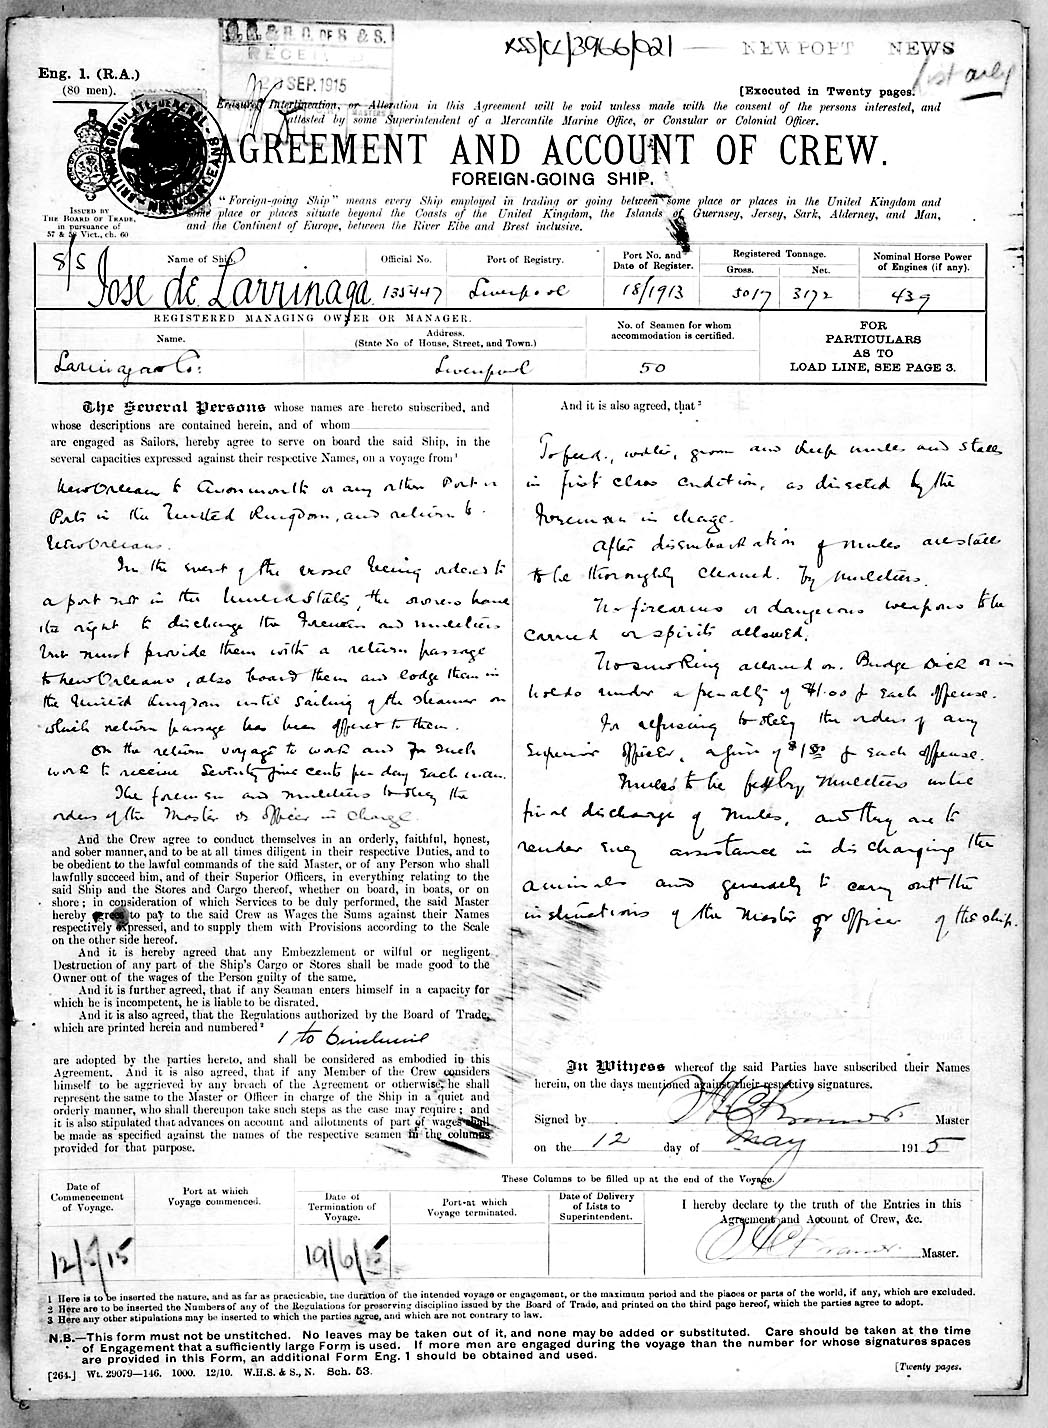 R.G. & R.O. OF S. & S.
RECEIVED
SEP. 1915
XSS/CL/3966/021
NEWPORT NEWS
List only
Eng. 1. (R.A.)
(80 men).
[Executed in Twenty pages.
Erasure, Interlineation, or Alteration in this Agreement will be void unless made with the consent of the persons interested, and
attested by some Superintendent of a Mercantile Marine Office, or Consular or Colonial Officer.
BRITISH CONSULATE-GENERAL
NEW ORLEANS
AGREEMENT AND ACCOUNT OF CREW.
FOREIGN-GOING SHIP.
ISSUED BY
THE BOARD OF TRADE,
in pursuance of
57 & 58 Vict., ch. 60
"Foreign-going Ship" means every Ship employed in trading or going between some place or places in the United Kingdom and
some place or places situate beyond the Coasts of the United Kingdom, the Islands of Guernsey, Jersey, Sark, Alderney, and Man,
and the Continent of Europe, between the River Elbe and Brest inclusive.
Name of Ship. Official No. Port of Registry. Port No. and Date of Register. Registered Tonnage. Gross. Net. Nominal Horse Power of Engines (if any).
S/S Jose de Larrinaga 135447 Liverpool 18/1913 5017 3172 439
REGISTERED MANAGING OWNER OR MANAGER.
Name. Address. (State No of House, Street, and Town.)
No. of Seamen for whom accommodation is certified.
FOR
PARTICULARS
AS TO
LOAD LINE, SEE PAGE 3.
Larrinaga & Co. Liverpool 50
The Several Persons whose names are hereto subscribed, and
whose descriptions are contained herein, and of whom
are engaged as Sailors, hereby agree to serve on board the said Ship, in the
several capacities expressed against their respective Names, on a voyage from 1
New Orleans to Avonmouth or any other Port or
Ports in the United Kingdom, and return to
New Orleans.
In the event of the vessel being ordered to
a port not in the United States, the owners have
the right to discharge the Foremen and muleteers
but must provide them with a return passage
to New Orleans, also board them and lodge them in
the United Kingdom until sailing of the steamer on
which return passage has been offered to them.
On the return voyage to work and for such
work to receive Seventy five cents per day each man.
The foremen and muleteers to obey the
orders of the Master or officer in charge.
And the Crew agree to conduct themselves in an orderly, faithful, honest,
and sober manner, and to be at all times diligent in their respective Duties, and to
be obedient to the lawful commands of the said Master, or of any Person who shall
lawfully succeed him, and of their Superior Officers, in everything relating to the
said Ship and the Stores and Cargo thereof, whether on board, in boats, or on
shore; in consideration of which Services to be duly performed, the said Master
hereby agrees to pay to the said Crew as Wages the Sums against their Names
respectively expressed, and to supply them with Provisions according to the Scale
on the other side hereof.
And it is hereby agreed that any Embezzlement or wilful or negligent
Destruction of any part of the Ship's Cargo or Stores shall be made good to the
Owner out of the wages of the Person guilty of the same.
And it is further agreed, that if any Seaman enters himself in a capacity for
which he is incompetent, he is liable to be disrated.
And it is also agreed, that the Regulations authorized by the Board of Trade,
which are printed herein and numbered 2
1 to 6 inclusive
are adopted by the parties hereto, and shall be considered as embodied in this
Agreement. And it is also agreed, that if any Member of the Crew considers
himself to be aggrieved by any breach of the Agreement or otherwise, he shall
represent the same to the Master or Officer in charge of the Ship in a quiet and
orderly manner, who shall thereupon take such steps as the case may require; and
it is also stipulated that advances on account and allotments of part of wages shall
be made as specified against the names of the respective seamen in the columns
provided for that purpose.
And it is also agreed, that 3
To feed, water, groom and keep mules and stalls
in first class condition, as directed by the
Foreman in charge.
After disembarkation of mules all stalls
to be thoroughly cleaned by muleteers.
No firearms or dangerous weapons to be
carried or spirits allowed.
No smoking allowed on Bridge Deck or in
holds under a penalty of $1.00 for each offense.
For refusing to obey the orders of any
superior officer, a fine of $1.00 for each offense.
Mules to be fed by muleteers until
final discharge of mules, and they are to
render every assistance in discharging the
animals and generally to carry out the
instructions of the Master or officer of the ship.
In Witness whereof the said Parties have subscribed their Names
herein, on the days mentioned against their respective signatures.
Signed by Master
on the 12 day of May 1915
These Columns to be filled up at the end of the Voyage.
Date of Commencement of Voyage. Port at which Voyage commenced. Date of Termination of Voyage. Port at which Voyage terminated. Date of Delivery of Lists to Superintendent.
I hereby declare to the truth of the Entries in this
Agreement and Account of Crew, &c.
Master.
12/5/15 19/6/15
1 Here is to be inserted the nature, and as far as practicable, the duration of the intended voyage or engagement, or the maximum period and the places or parts of the world, if any, which are excluded.
2 Here are to be inserted the Numbers of any of the Regulations for preserving discipline issued by the Board of Trade, and printed on the third page hereof, which the parties agree to adopt.
3 Here any other stipulations may be inserted to which the parties agree, and which are not contrary to law.
N.B.—This form must not be unstitched. No leaves may be taken out of it, and none may be added or substituted. Care should be taken at the time
of Engagement that a sufficiently large Form is used. If more men are engaged during the voyage than the number for whose signatures spaces
are provided in this Form, an additional Form Eng. 1 should be obtained and used.
[264.] Wt. 29079—146. 1000. 12/10. W.H.S. & S., N. Sch. 53.
[Twenty pages.